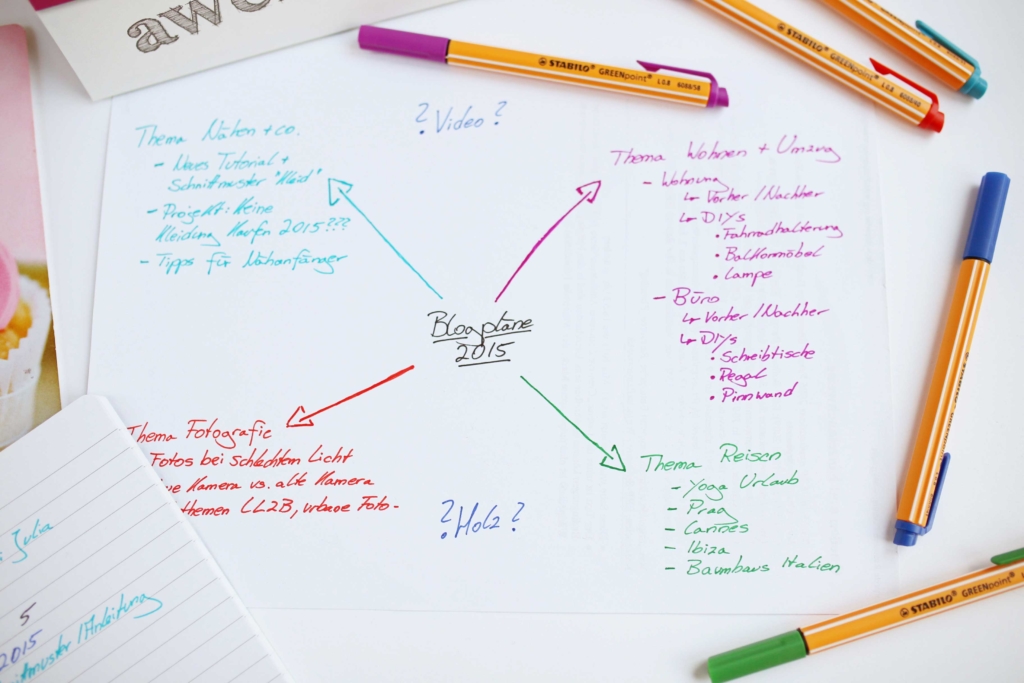 STABILO® GREENpoint® 1.0.8 6088/58
STABILO® GREENpoint® 6088/40
? Video ?
Thema Nähen + co.
- Neues Tutorial +
Schnittmuster "Kleid"
- Projekt: Keine
Kleidung Kaufen 2015???
- Tipps für Nähanfänger
Thema Wohnen + Umzug
- Wohnung
↳ Vorher / Nachher
↳ DIYs
• Fahrradhalterung
• Balkonmöbel
• Lampe
- Büro
↳ Vorher / Nachher
↳ DIYs
• Schreibtische
• Regal
• Pinnwand
Blogpläne
2015
Thema Fotografie
Fotos bei schlechtem Licht
Kamera vs. alte Kamera
themen LL2B, urbane Foto-
? Holz ?
Thema Reisen
- Yoga Urlaub
- Prag
- Cannes
- Ibiza
- Baumhaus Italien
Julia
5
2015
/Anleitung
STABILO® GREENpoint®